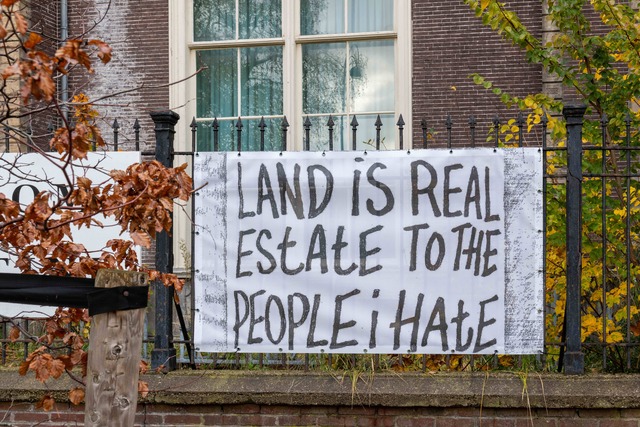 LAND iS REAL
EStAtE TO THE
PEOPLE i HAtE